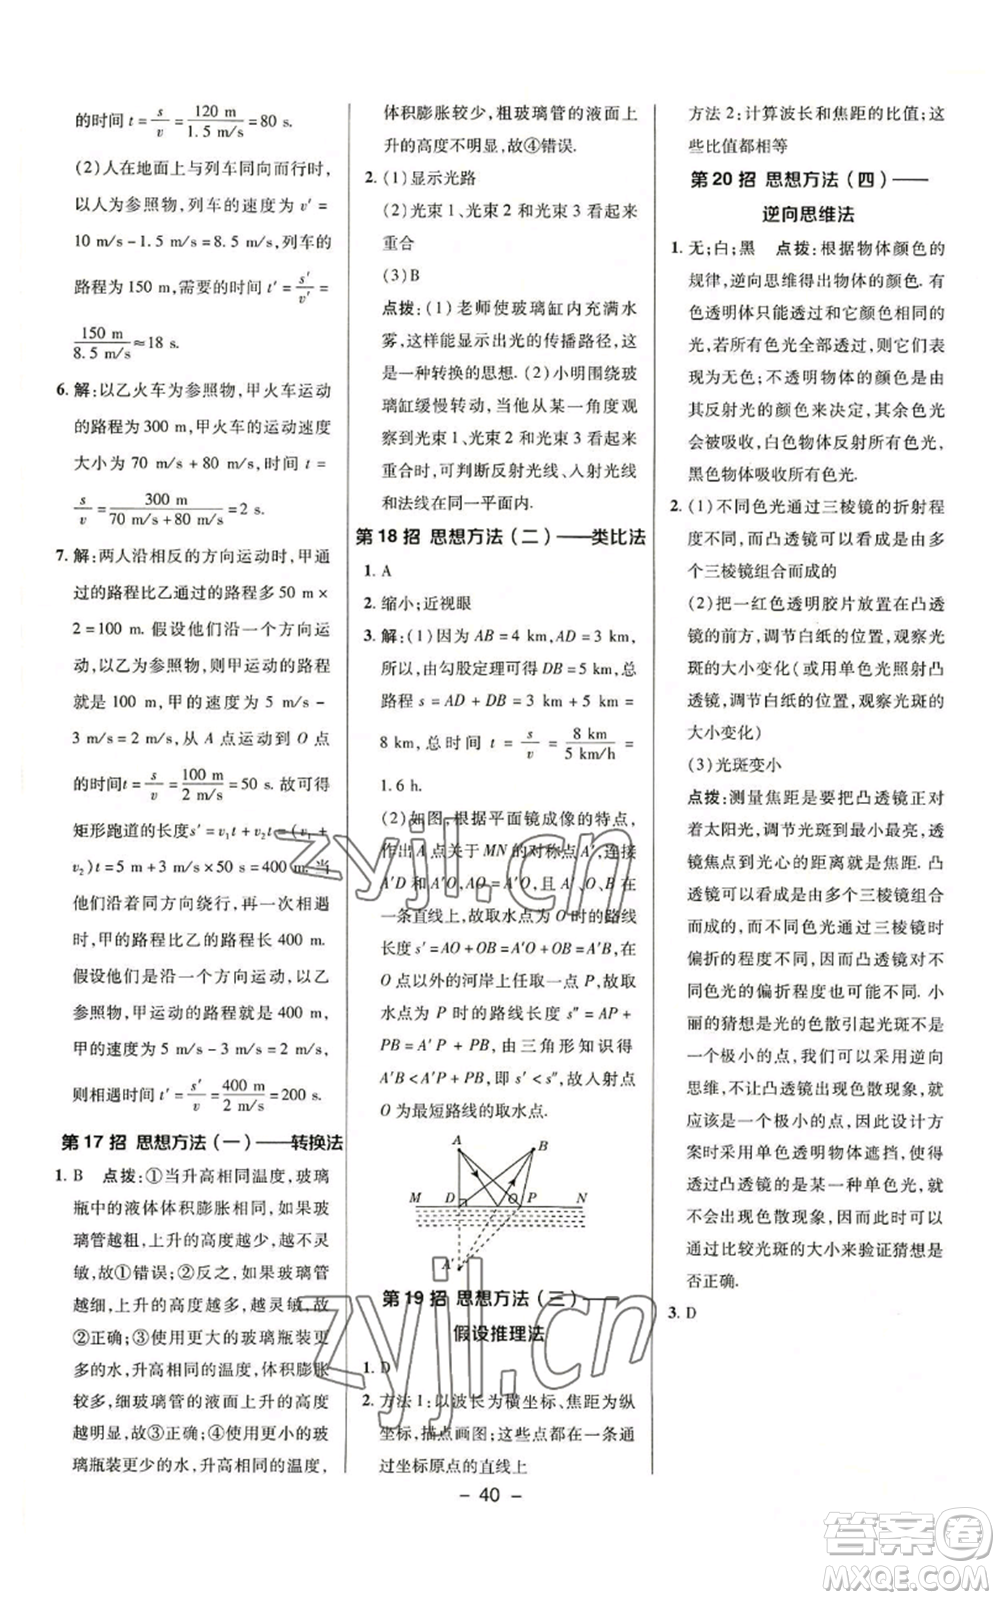 的时间 t = s/v = 120 m/1.5 m/s = 80 s.
(2)人在地面上与列车同向而行时,
以人为参照物,列车的速度为 v′ =
10 m/s - 1.5 m/s = 8.5 m/s,列车的
路程为 150 m,需要的时间 t′ = s′/v′ =
150 m/8.5 m/s ≈ 18 s.
6. 解:以乙火车为参照物,甲火车运动
的路程为 300 m,甲火车的运动速度
大小为 70 m/s + 80 m/s,时间 t =
s/v = 300 m/70 m/s + 80 m/s = 2 s.
7. 解:两人沿相反的方向运动时,甲通
过的路程比乙通过的路程多 50 m ×
2 = 100 m. 假设他们沿一个方向运
动,以乙为参照物,则甲运动的路程
就是 100 m,甲的速度为 5 m/s -
3 m/s = 2 m/s,从 A 点运动到 O 点
的时间 t = s/v = 100 m/2 m/s = 50 s. 故可得
矩形跑道的长度 s′ = v₁t + v₂t = (v₁ +
v₂)t = (5 m/s + 3 m/s) × 50 s = 400 m. 当
他们沿着同方向绕行,第一次相遇
时,甲的路程比乙的路程长 400 m.
假设他们是沿一个方向运动,以乙
为参照物,甲运动的路程是 400 m,
甲的速度是 5 m/s - 3 m/s = 2 m/s,
则相遇时间 t′ = s′/v = 400 m/2 m/s = 200 s.
第 17 招 思想方法(一)——转换法
1. B 点拨:①当升高相同温度,玻璃
瓶中的液体体积膨胀相同,如果玻
璃管越粗,上升的高度越小,越不灵
敏,故①错误;②反之,如果玻璃管
越细,上升的高度越多,越灵敏,故
②正确;③使用更大的玻璃瓶装更
多的水,升高相同的温度,体积膨胀
较多,细玻璃管的液面上升的高度
越明显,故③正确;④使用更小的玻
璃瓶装更少的水,升高相同的温度,
体积膨胀较少,粗玻璃管的液面上
升的高度不明显,故④错误.
2. (1)显示光路
(2)光束 1、光束 2 和光束 3 看起来
重合
(3)B
点拨:(1)老师使玻璃缸内充满水
雾,这样能显示出光的传播路径,这
是一种转换的思想. (2)小明围绕玻
璃缸缓慢转动,当他某一角度观
察到光束 1、光束 2 和光束 3 看起来
重合时,可判断反射光线、入射光线
和法线在同一平面内.
第 18 招 思想方法(二)——类比法
1. A
2. 缩小;近视眼
3. 解:(1)因为 AB = 4 km,AD = 3 km,
所以,由勾股定理可得 DB = 5 km,总
路程 s = AD + DB = 3 km + 5 km =
8 km,总时间 t = s/v = 8 km/5 km/h =
1.6 h.
(2)如图,根据平面镜成像的特点,
作出 A 点关于 MN 的对称点 A′,连接
A′D 和 A′O,AO = A′O,且 A′、O、B 在
一条直线上,故取水点为 O 时的路线
长度 s′ = AO + OB = A′O + OB = A′B,在
O 点以外的河岸上任取一点 P,故取
水点为 P 时的路线长度 s″ = AP +
PB = A′P + PB,由三角形知识得
A′B < A′P + PB,即 s′ < s″,故入射点
O 为最短路线的取水点.
A B
M D O P N
A′
第 19 招 思想方法(三)——
假设推理法
1. D
2. 方法 1:以波长为横坐标、焦距为纵
坐标,描点画图;这些点都在一条通
过坐标原点的直线上
方法 2:计算波长和焦距的比值;这
些比值都相等
第 20 招 思想方法(四)——
逆向思维法
1. 无;白;黑 点拨:根据物体颜色的
规律,逆向思维得出物体的颜色. 有
色透明体只能透过和它颜色相同的
光,若所有色光全部透过,则此物体
为无色;不透明物体的颜色由
其反射光的颜色来决定,其余色光
会被吸收,白色物体反射所有色光,
黑色物体吸收所有色光.
2. (1)不同色光通过三棱镜的折射程
度不同,而凸透镜可以看成是由多
个三棱镜组合而成的
(2)把一红色透明胶片放置在凸透
镜的前方,调节白纸的位置,观察光
斑的大小变化(或用单色光照射凸
透镜,调节白纸的位置,观察光斑的
大小变化)
(3)光斑变小
点拨:测量焦距是要把凸透镜正对
着太阳光,调到光斑到最小最亮,凸
透镜焦点到光心的距离就是焦距. 凸
透镜可以看成是由多个三棱镜组合
而成的,太阳光通过三棱镜时会发生
偏折的程度不同,因此凸透镜对不
同色光的偏折程度也可能不同. 小
丽的猜想是光的色散引起光斑不是
一个极小的点,我们可以利用逆向
思维,不让凸透镜出现色散现象,就
应该是一个极小的点,所以设计方
案采用有色透明物体遮挡,使得通
过凸透镜的是某一种单色光,就
不会出现色散现象,不同色光可以
通过比较光斑的大小来验证猜想是
否正确.
3. D
- 40 -
zyjl.cn
zyjl.cn
答案圈
MXQE.COM